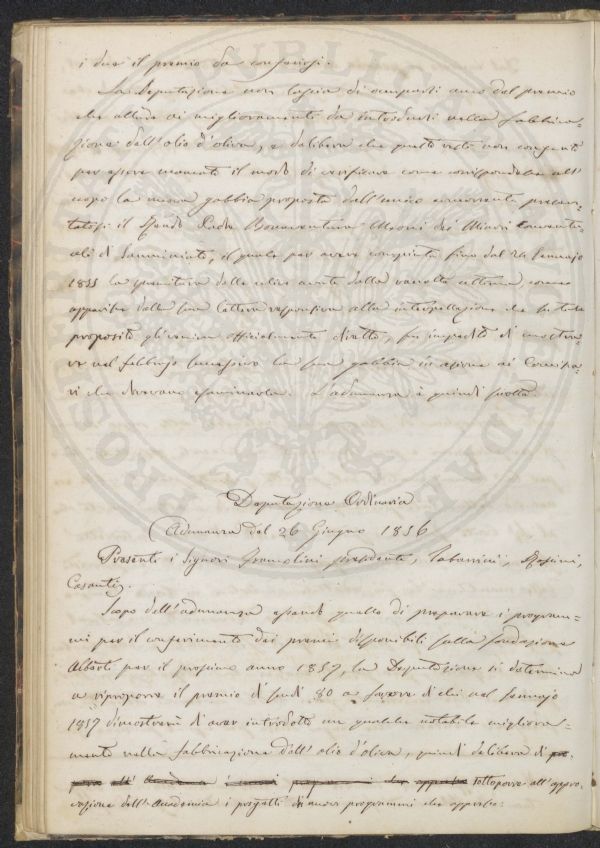 i due il premio da conferirsi.
La Deputazione non lascia di occuparsi anco del premio
che allude ai miglioramenti da introdursi nella fabbrica=
zione dell'olio d'oliva, e delibera che questo resti non conferito
per essere mancato il modo di verificare come corrispondesse all'
uopo la nuova gabbia proposta dall'unico concorrente presen=
tatosi il Rdo Padre Bonaventura Meoni dei Minori Conventu=
ali di Sanminiato, il quale per avere compiuta fino dal 24 Gennajo
1855 la frangitura delle olive avute dalla raccolta ultima come
apparisce dalla sua lettera responsiva alla interpellazione che su tal
proposito gli veniva officialmente diretta, fu impedito di mostra=
re nel febbrajo successivo la sua gabbia in azione ai Commissa=
ri che dovevano esaminarla. L'adunanza è quindi sciolta.
Deputazione Ordinaria
Adunanza del 26 Giugno 1856
Presenti i Signori presidente, Tabarrini,
Casanti.
Scopo dell'adunanza essendo quello di preparare i program=
mi per il conferimento dei premi disponibili sulla fondazione
Alberti per il prossimo anno 1857, la Deputazione si determina
a riproporre il premio di scudi 80 a favore di chi nel Gennajo
1857 dimostrerà di aver introdotto un qualche notabile migliora=
mento nella fabbricazione dell'olio d'oliva, quindi delibera di
sottoporre all'appro=
vazione dell'Accademia i progetti di nuovi programmi che appresso: